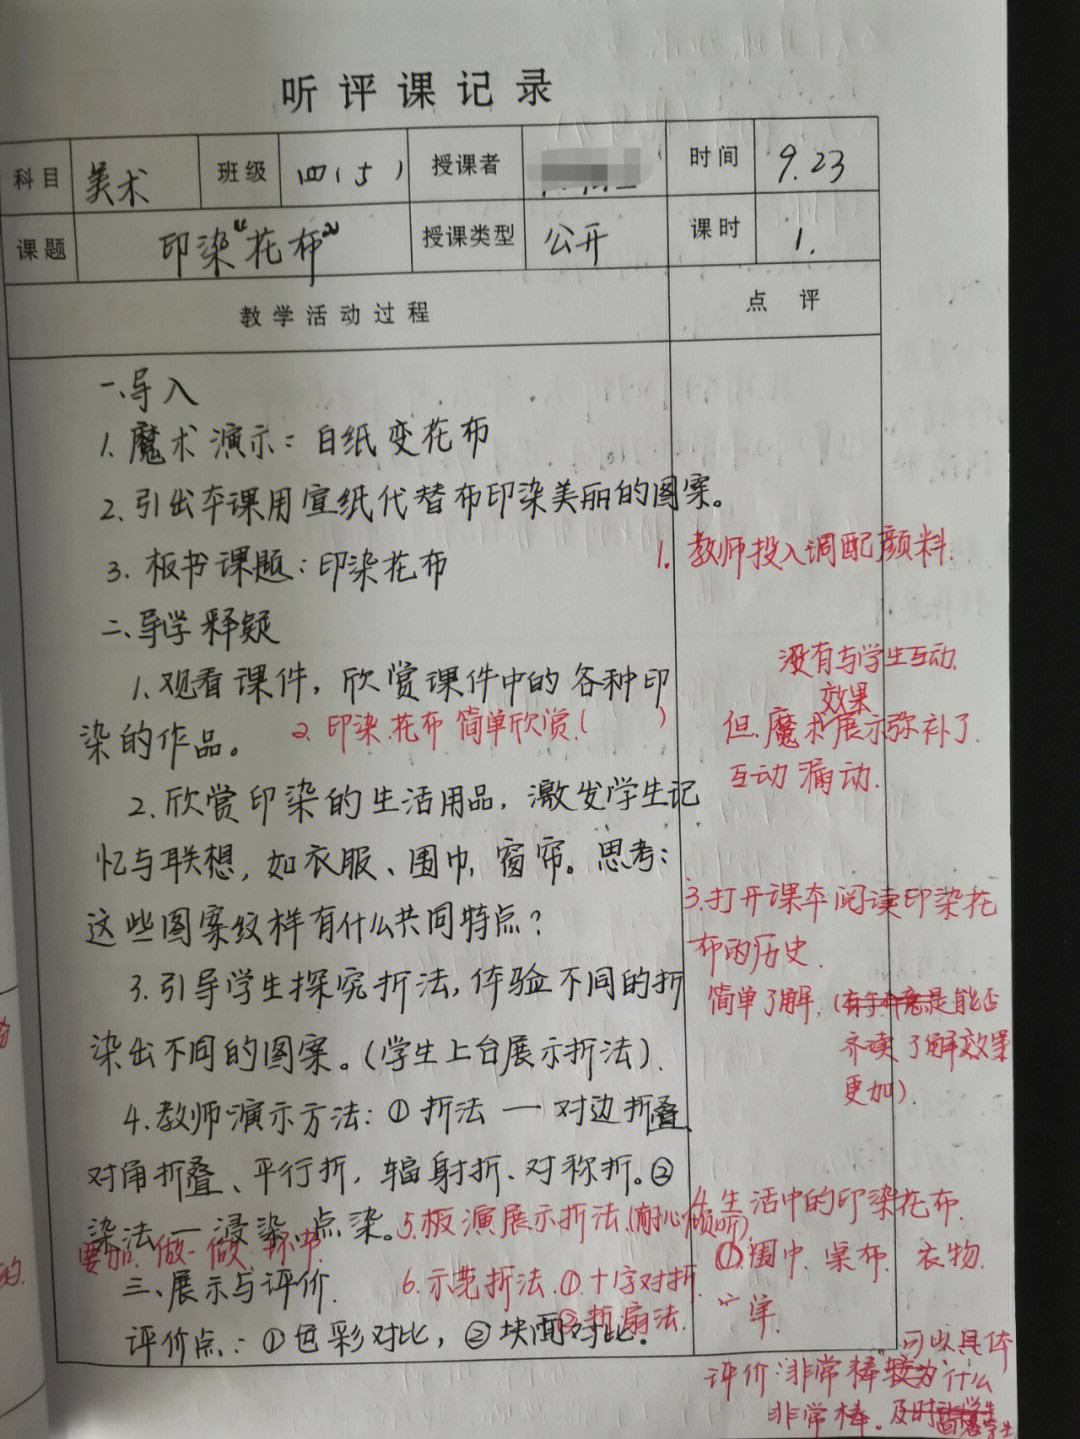 听评课记录
科目 美术 班级 四(5) 授课者 时间 9.23
课题 印染"花布" 授课类型 公开 课时 1.
教学活动过程 点评
一、导入
1.魔术演示:白纸变花布
2.引出本课用宣纸代替布印染美丽的图案。
3.板书课题:印染花布
1.教师投入调配颜料.
二、导学释疑
没有与学生互动.
1.观看课件,欣赏课件中的各种印
效果
染的作品。
2.印染.花布 简单欣赏.( )
但.魔术展示弥补了.
互动漏动.
2.欣赏印染的生活用品,激发学生记
忆与联想,如衣服、围巾,窗帘。思考:
3.打开课本阅读印染花
这些图案纹样有什么共同特点?
布的历史.
3.引导学生探究折法,体验不同的折
简单了解.(是能否
染出不同的图案。(学生上台展示折法).
齐读了解效果
更加).
4.教师演示方法:①折法一对边折叠、
对角折叠、平行折,辐射折、对称折。②
4.生活中的印染花布.
染法一浸染、点染。
5.板演展示折法(耐心倾听)
①.围巾.桌布.衣物.
要加.做一做.环节
三、展示与评价.
6.示范折法.①.十字对折.
②折扇法.
评价点:①色彩对比,②块面对比.
可以具体
评价:非常棒 为什么
非常棒。及时